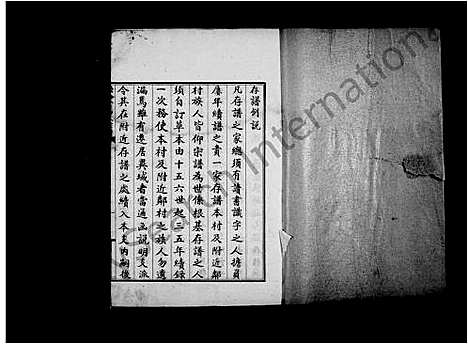 存譜例說
凡存譜之家總須有讀書識字之人擔負
屢年續譜之責一家存譜本村及附近鄰
村族人皆仰宗譜為世係根基存譜之人
須自訂草本由十五六世起三五年續錄
一次務使本村及附近鄰村之族人勿遺
漏焉雖有遷居異域者當通函說明支派
令其在附近存譜之處續入本支內嗣像
Search International